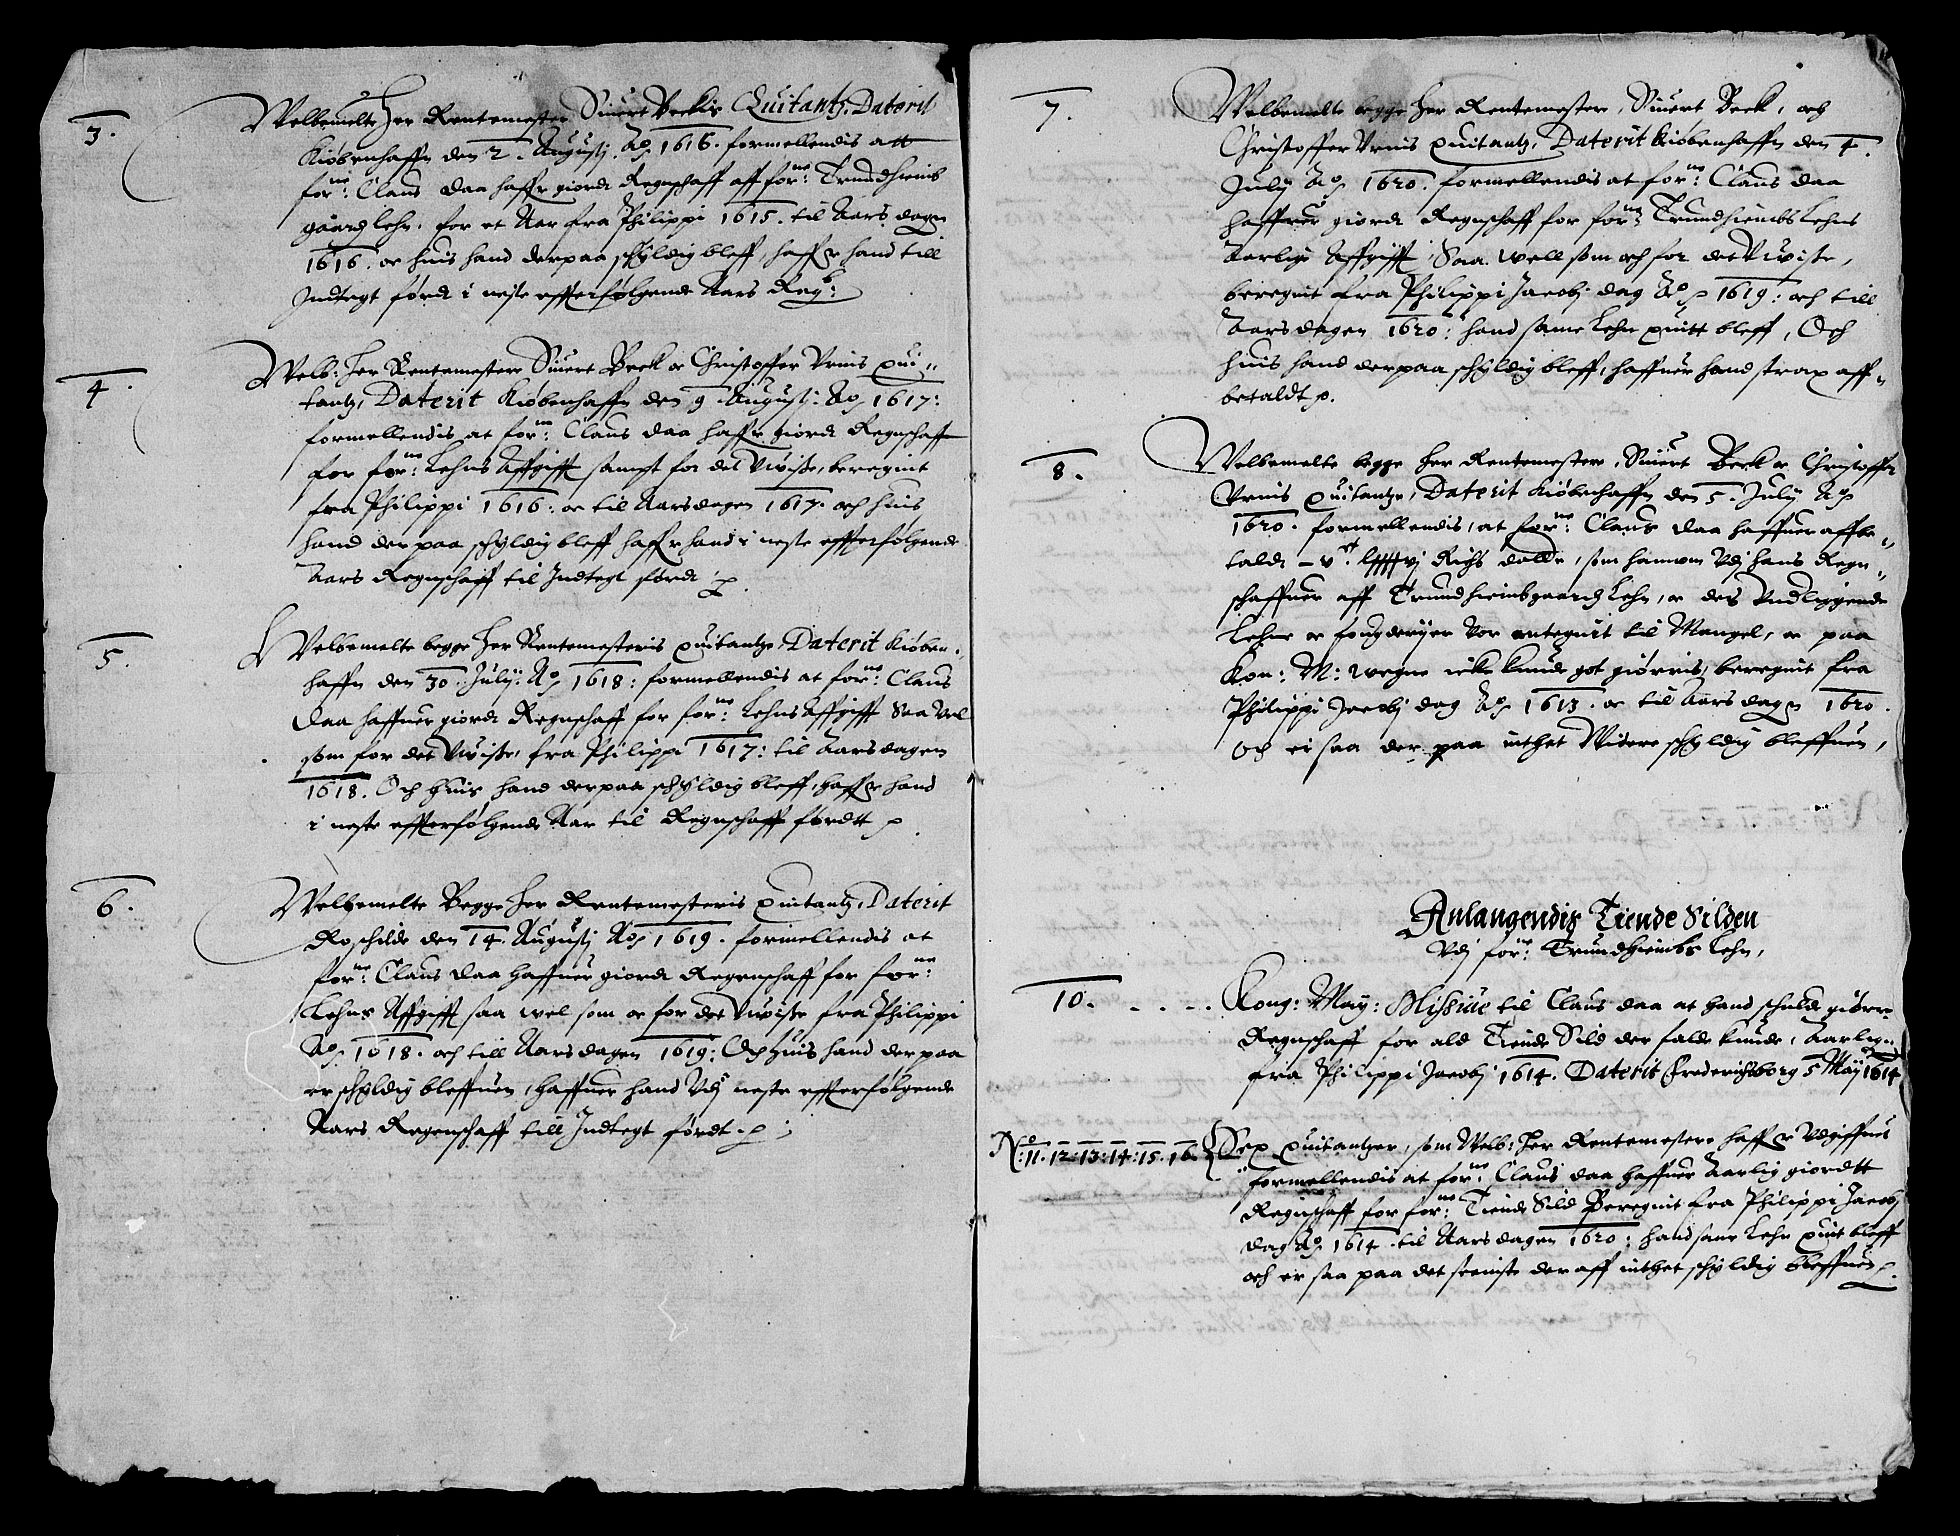 3.
Welbemelte Her Rentemester Siuert Beckis Quitantz, Daterit
Kiøbenhaffn den 2. Augustj Ao 1616. formellendis att
forne: Claus Daa haffr giordt Regnschaff aff forne: Trundhiembs
gaardz lehn, for et Aar fra Philippi 1615. til Aars dagen
1616. oc huis hand derpaa schyldig bleff, haffr hand till
Indtegt førdt i neste effterfølgende Aars Regsk:
4.
Welb: Her Rentemestere Siuert Beck oc Christoffer Vrnis qui„
tantz, Daterit Kiøbenhaffn den 9 Augustj: Ao 1617:
formellendis at forne: Claus Daa haffr giordt Regnschaff
for forne: Lehns Affgifft sampt for det Uuisse, beregnit
fra Philippi 1616: oc til Aarsdagen 1617. och huis
hand der paa schyldig bleff haffr hand i neste effterfølgende
Aars Regnschaff til Indtegt førdt p.
5.
Welbemelte begge Her Rentemesteris quitantz, Daterit Kiøben„
haffn den 30. Julij: Ao 1618: formellendis at forne: Claus
Daa haffuer giordt Regnschaff for forne: Lehns Affgifft Saa Vel
som for det Uuisse, fra Philippi 1617: til Aarsdagen
1618. Och huis hand derpaa schyldig bleff, haffr hand
i neste effterfølgende Aar til Regnschaff førdtt p
6.
Welbemelte Begge Her Rentemesteris quitantz, Daterit
Roschilde den 14. Augustj Ao 1619. formellendis at
forne: Claus Daa haffuer giordt Regenschaff for forne:
Lehns Affgifft saa wel som oc for det Uuisse fra Philippi
Ao 1618. och till Aarsdagen 1619: Och huis hand der paa
er schyldig bleffuen, haffuer hand Vdj neste effterfølgende
Aars Regenschaff till Indtegt førdt. p ;
7.
Welbemelte begge Her Rentemester, Siuert Beck, och
Christoffer Vrnis quitantz, Daterit Kiøbenhaffn den 4.
July Ao 1620. formellendis at forne: Claus Daa
haffuer giordt Regnschaff for forne: Trundhiembs Lehns
Aarlige Affgifft, Saa well som och for det Uuisse,
beregnit fra Philippi Jacobj dag Ao 1619: och till
Aarsdagen 1620: hand same Lehn quitt bleff, Och
huis hand derpaa schyldig bleff, haffuer hand strax aff„
betaldt p.
8.
Welbemelte begge Her Rentemestere, Siuert Beck oc Christoffer
Vrnis quitantze, Daterit Kiøbenhaffn den 5. July Ao
1620. formellendis, at forne: Claus Daa haffuer affbe„
taldt – vc. lxxxxvj Richs daller, som hannom Vdj hans Regn„
schaffuer aff Trundhiembsgaardz Lehn, oc des Vndliggende
Lehne oc fougderyer Vor antegnit til Mangel, oc paa
Kon: M: wegne icke kunde got giørris, beregnit fra
Philippi Jacobj dag Ao 1613. oc til Aars dagen 1620.
och er saa der paa inthet Widere schyldig bleffuen,
Anlangendis Tiende Silden
Vdj forne: Trundhiembs Lehn,
10. . . . .
Kong: May: Missiue til Claus Daa at hand schulde giøre
Regnschaff for ald Tiende Sild der falde kunde, Aarlig„
fra Philippi Jacobj 1614. Daterit Frederichsborg 5 Maij 1614
No: 11. 12. 13. 14. 15. 16.
Sex quitantzer, som Welb: Her Rentemestere haffr Vdgiffuet
formellendis at forne: Claus Daa haffuer Aarlig giordtt
Regnschaff for forne: Tiende Sild Beregnit fra Philippi Jacobj
dag Ao 1614. til Aarsdagen 1620: hand same Lehn quit bleff
och er saa paa det seeniste der aff inthet schyldig bleffuen p.